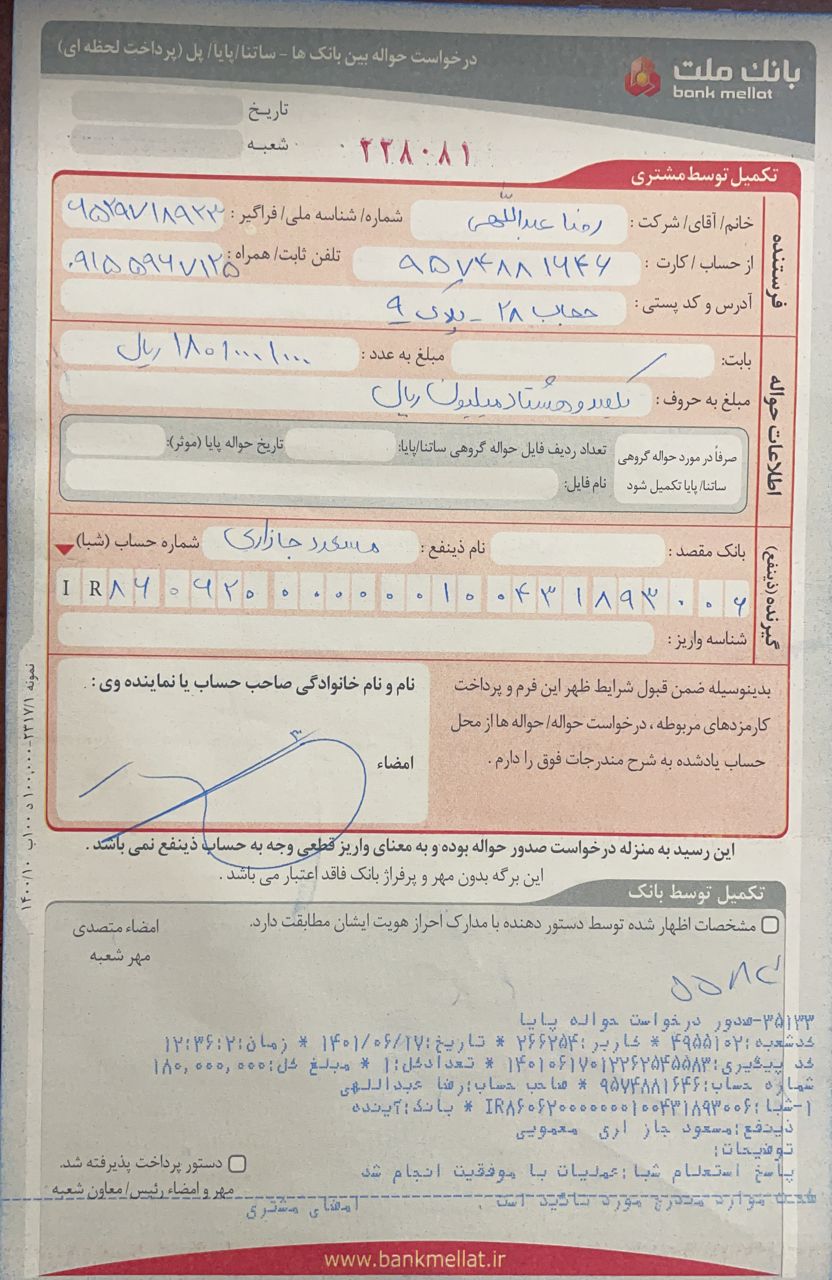 بانک ملت
bank mellat
درخواست حواله بین بانک ها - ساتنا/پایا/ پل (پرداخت لحظه ای)
تاریخ
شعبه
۲۲۸۰۸۱
تکمیل توسط مشتری
فرستنده
خانم/ آقای/ شرکت: رضا عبداللهی شماره/ شناسه ملی/ فراگیر:
از حساب/ کارت: ۹۵۷۴۸۸۱۶۴۶ تلفن ثابت/ همراه: ۰۹۱۵۵۹۶۷۱۲۵
آدرس و کد پستی: حجاب ۲۸ - پلاک ۹
اطلاعات حواله
بابت: مبلغ به عدد: ۱۸۰/۰۰۰/۰۰۰ ریال
مبلغ به حروف: یکصد و هشتاد میلیون ریال
صرفاً در مورد حواله گروهی ساتنا/ پایا تکمیل شود
تعداد ردیف فایل حواله گروهی ساتنا/پایا: تاریخ حواله پایا (موثر):
نام فایل:
گیرنده (ذینفع)
بانک مقصد: نام ذینفع: مسعود جازاری شماره حساب (شبا)
IR۸۶۰۶۲۰۰۰۰۰۰۰۱۰۰۴۳۱۸۹۳۰۰۶
شناسه واریز:
بدینوسیله ضمن قبول شرایط ظهر این فرم و پرداخت
کارمزدهای مربوطه، درخواست حواله/ حواله ها از محل
حساب یادشده به شرح مندرجات فوق را دارم.
نام و نام خانوادگی صاحب حساب یا نماینده وی:
امضاء
این رسید به منزله درخواست صدور حواله بوده و به معنای واریز قطعی وجه به حساب ذینفع نمی باشد.
این برگه بدون مهر و پرفراژ بانک فاقد اعتبار می باشد.
تکمیل توسط بانک
مشخصات اظهار شده توسط دستور دهنده با مدارک احراز هویت ایشان مطابقت دارد.
امضاء متصدی
مهر شعبه
۳۵۱۳۳-صدور درخواست حواله پایا
کدشعبه:۴۹۵۵۱۰۲ * کاربر:۲۶۶۲۵۴ * تاریخ:۱۴۰۱/۰۶/۱۷ * زمان:۱۲:۳۶:۲
کد پیگیری:۱۴۰۱۰۶۱۷۰۱۲۲۶۲۵۴۵۵۸۳ * تعدادکل:۱ * مبلغ کل:۱۸۰,۰۰۰,۰۰۰
شماره حساب:۹۵۷۴۸۸۱۶۴۶ * صاحب حساب:رضا عبداللهی
۱-شبا:IR۸۶۰۶۲۰۰۰۰۰۰۰۱۰۰۴۳۱۸۹۳۰۰۶ * بانک:آینده
ذینفع:مسعود جاز اری معمویی
توضیحات:
پاسخ استعلام شبا:عملیات با موفقیت انجام شد
صحت موارد مندرج مورد تائید است. امضای مشتری
دستور پرداخت پذیرفته شد.
مهر و امضاء رئیس/ معاون شعبه
www.bankmellat.ir